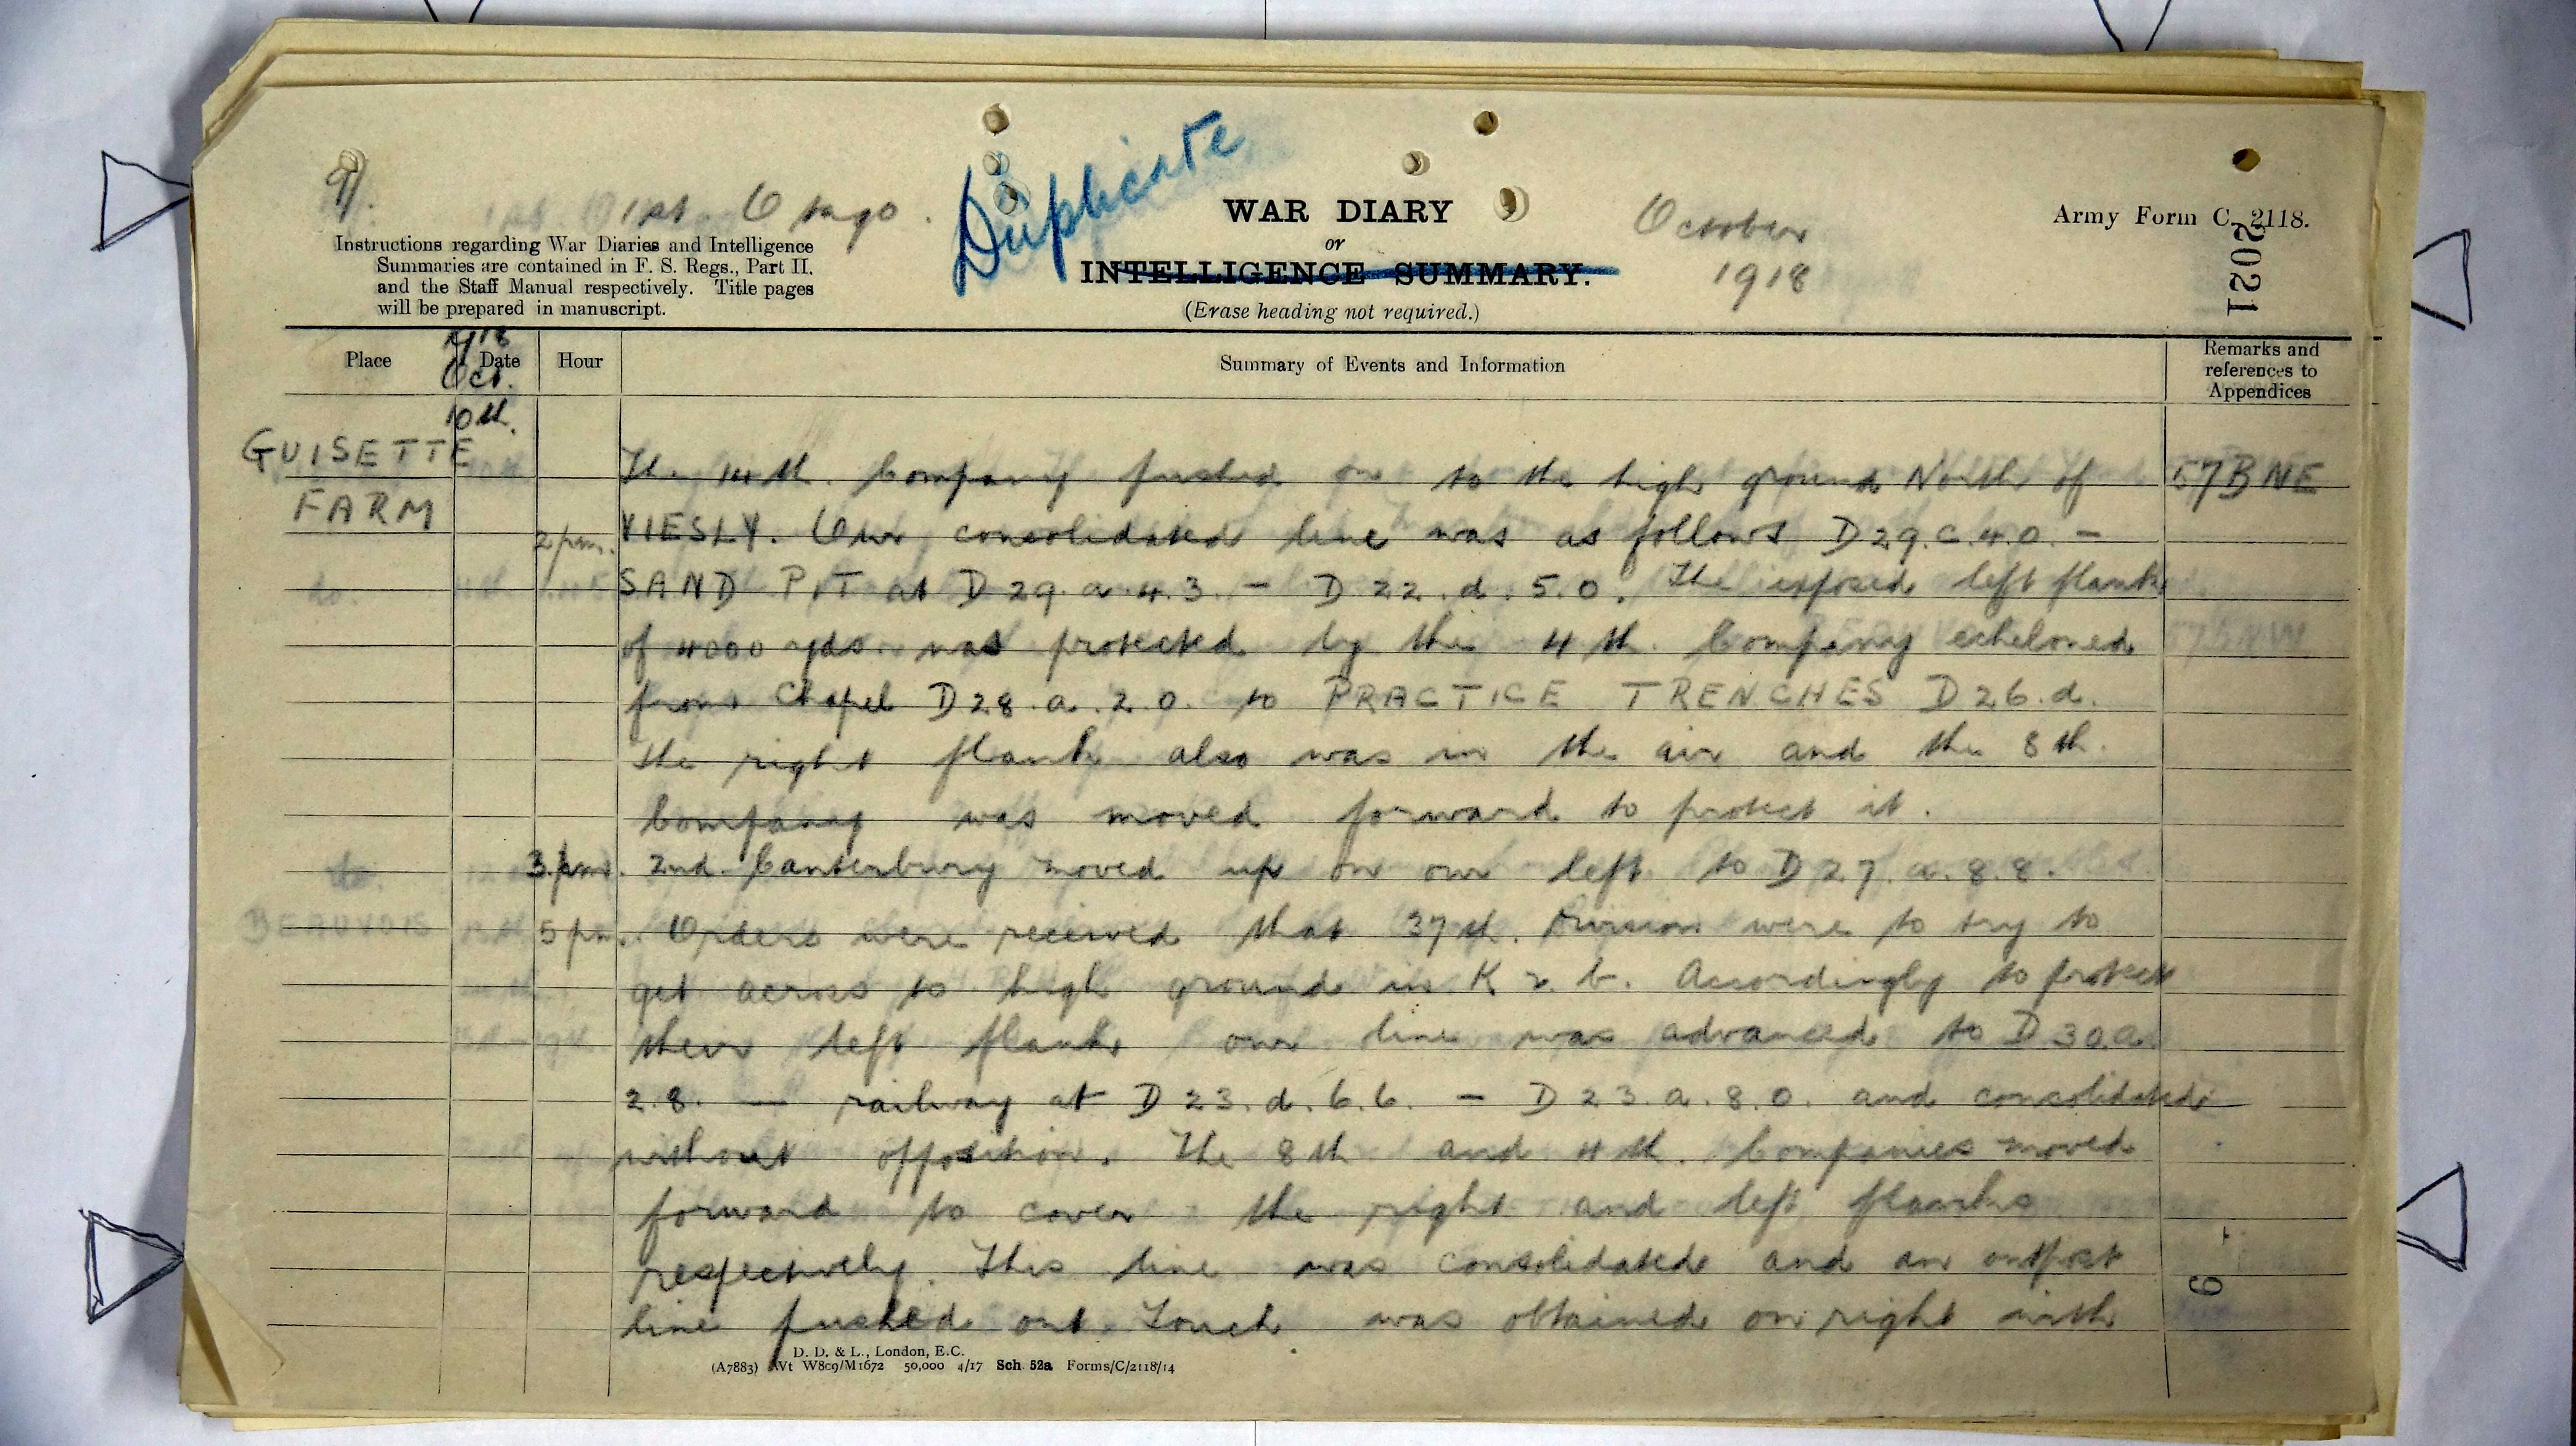 9).
1st Otago.
Duplicate
WAR DIARY
or
INTELLIGENCE SUMMARY.
(Erase heading not required.)
October
1918
Army Form C. 2118.
2021
Instructions regarding War Diaries and Intelligence
Summaries are contained in F. S. Regs., Part II.
and the Staff Manual respectively. Title pages
will be prepared in manuscript.
Place Date Hour Summary of Events and Information Remarks and references to Appendices
Oct.
10th.
GUISETTE The 14th. Company pushed on to the high ground North of 57B NE
FARM 2 pm. VIESLY. Our consolidated line was as follows D29.c.4.0. –
SAND PIT at D29.a.4.3 – D22.d.5.0. The exposed left flank
of 4000 yds. was protected by the 4th. Company echeloned
from Chapel D28.a.2.0. to PRACTICE TRENCHES D26.d.
The right flank also was in the air and the 8th.
Company was moved forward to protect it.
3 pm. 2nd. Canterbury moved up on our left to D27.a.8.8.
5 pm. Orders were received that 37th. Division were to try to
get across to high ground in K2.b. Accordingly to protect
their left flank our line was advanced to D30a.
2.8. — railway at D23.d.6.6. – D23.a.8.0. and consolidated
without opposition. The 8th and 4th. Companies moved
forward to cover the right and left flanks
respectively. This line was consolidated and an outpost
line pushed out. Touch was obtained on right with
D. D. & L., London, E.C.
(A7883) Wt W809/M1672 50,000 4/17 Sch. 52a Forms/C/2118/14